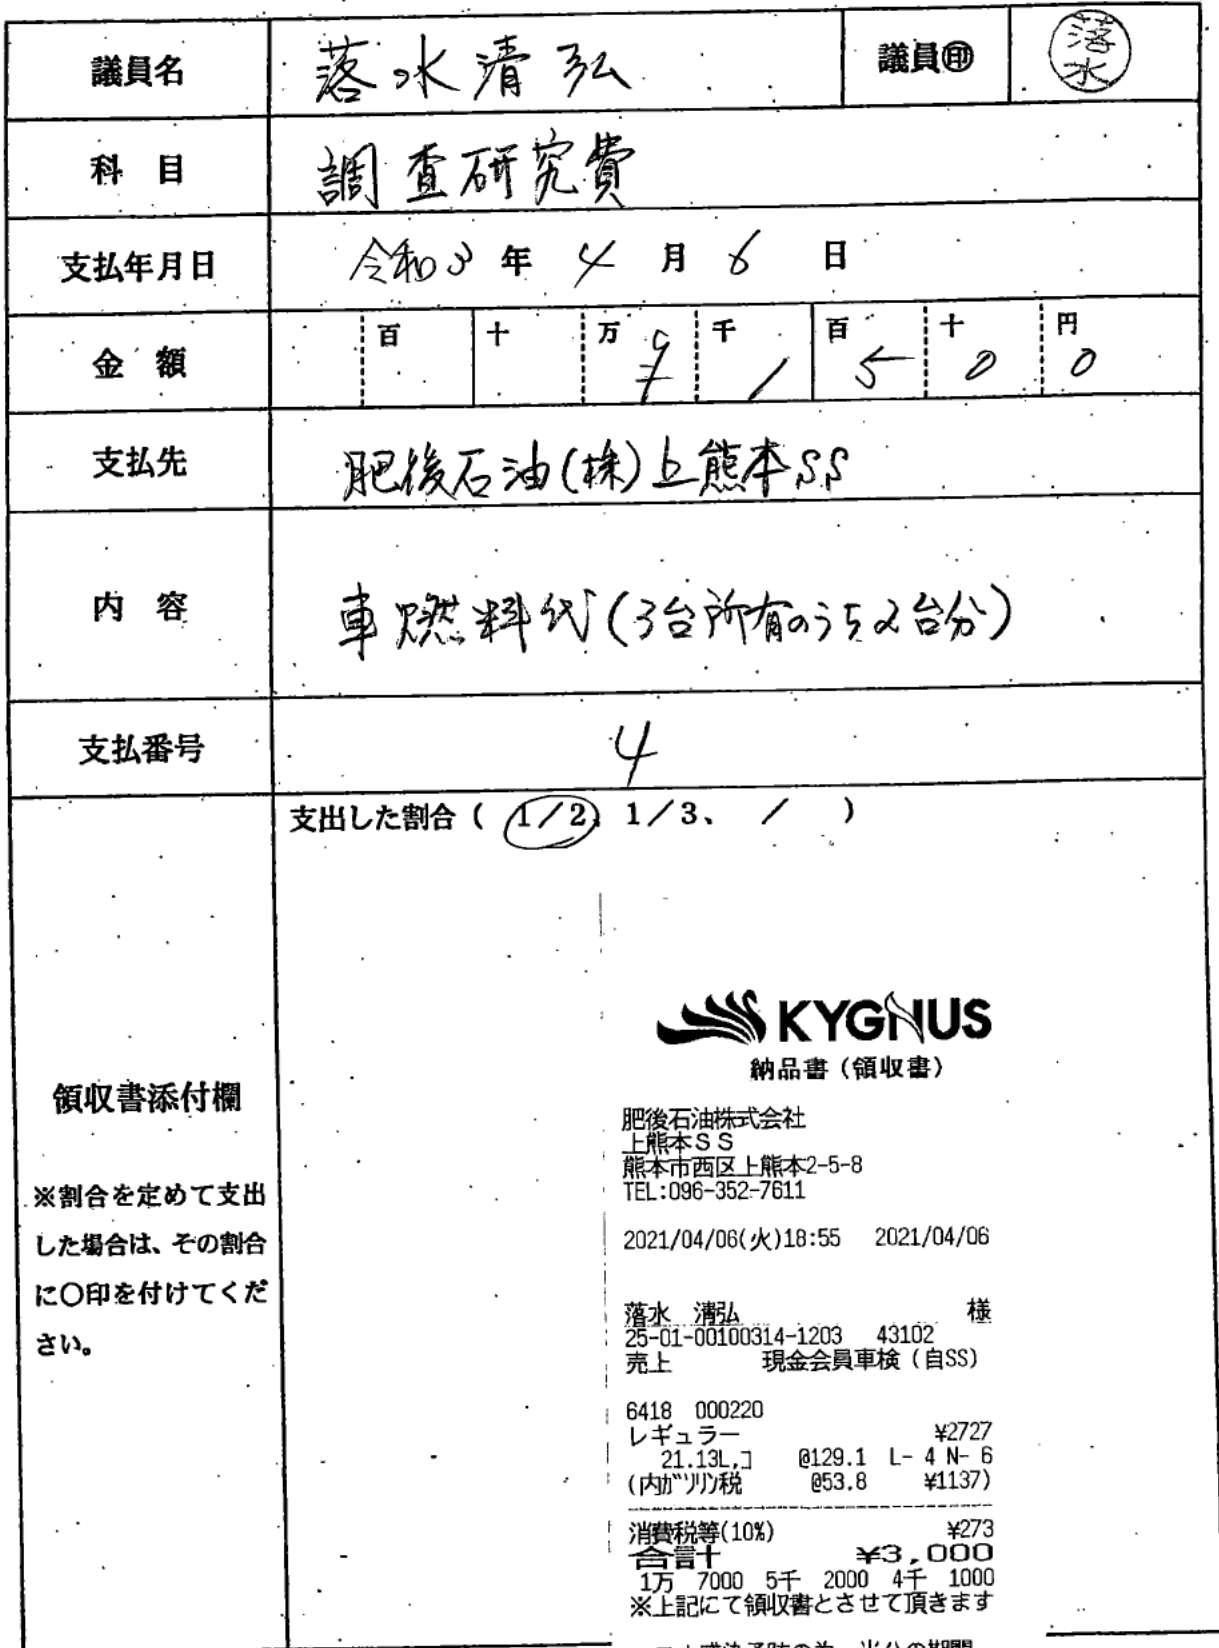 議員名 落水清弘 議員㊞ 落水
科 目 調査研究費
支払年月日 令和3年4月6日
金 額 百 十 万 千 1 百 5 十 0 円 0
支払先 肥後石油(株)上熊本SS
内 容 車燃料代(3台所有のうち2台分)
支払番号 4
支出した割合( 1/2、1/3、 / )
領収書添付欄
※割合を定めて支出
した場合は、その割合
に〇印を付けてくだ
さい。
KYGNUS
納品書(領収書)
肥後石油株式会社
上熊本SS
熊本市西区上熊本2-5-8
TEL:096-352-7611
2021/04/06(火)18:55 2021/04/06
落水 清弘 様
25-01-00100314-1203 43102
売上 現金会員車検(自SS)
6418 000220
レギュラー ¥2727
21.13L,コ @129.1 L- 4 N- 6
(内ガソリン税 @53.8 ¥1137)
消費税等(10%) ¥273
合計 ¥3,000
1万 7000 5千 2000 4千 1000
※上記にて領収書とさせて頂きます